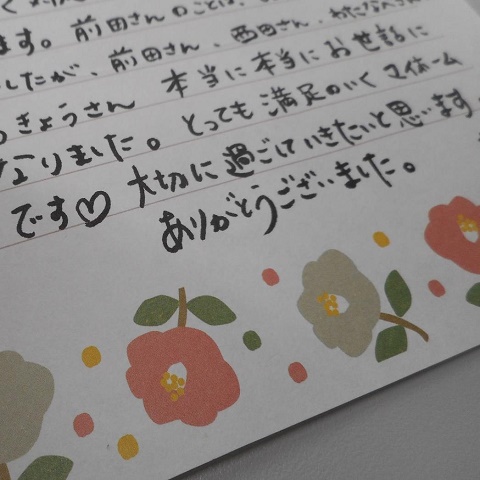 ます。前田さんのことは、
したが、前田さん、西田さん、わたなべさん
きょうさん 本当に本当にお世話に
なりました。とっても満足のいくマイホーム
です♡ 大切に過ごしていきたいと思います
ありがとうございました。